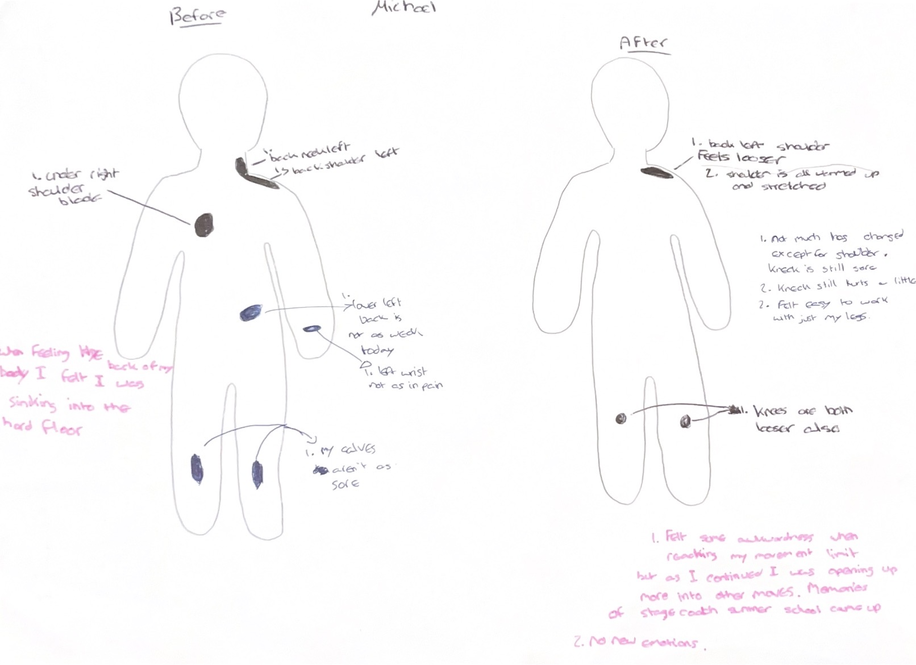 Before
Michael
1. back neck left
1. back shoulder left
1. under right
shoulder
blade
1.
lower left
back is
not as weak
today
1. left wrist
not as in pain
when feeling the back of my
body I felt I was
sinking into the
hard floor
1. my calves
aren't as
sore
After
1. back left shoulder
Feels looser
2. shoulder is all warmed up
and stretched
1. not much has changed
except for shoulder.
Kneck is still sore
2. Kneck still hurts a little
2. Felt easy to work
with just my legs.
1. Knees are both
looser also
1. Felt some awkwardness when
reaching my movement limit
but as I continued I was opening up
more into other moves. Memories
of stagecoach summer school came up
2. No new emotions.